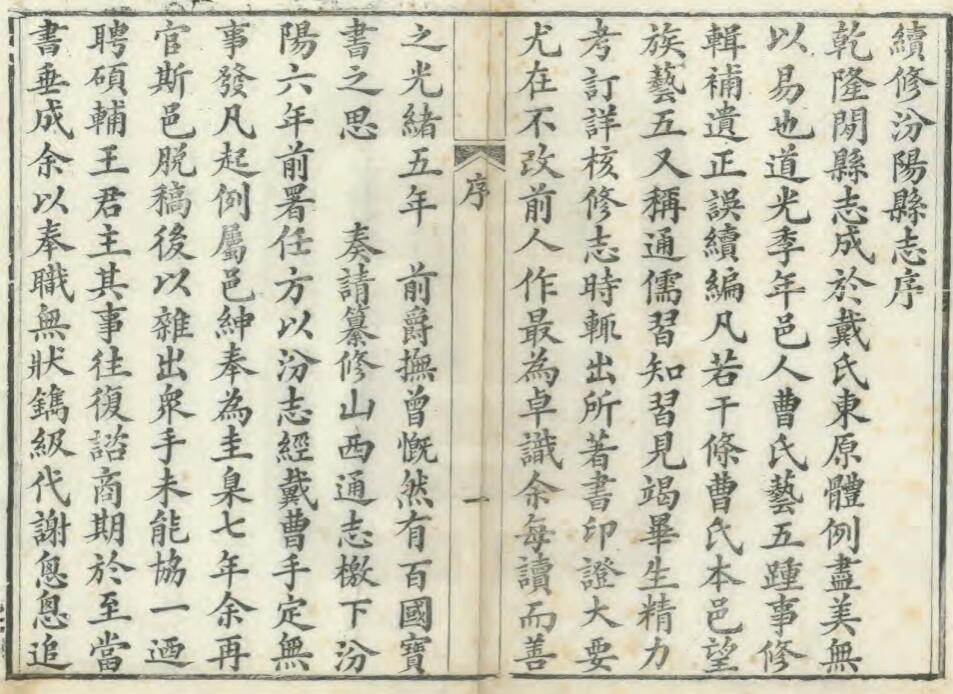 續修汾陽縣志序
乾隆閒縣志成於戴氏東原體例盡美無
以易也道光季年邑人曹氏藝五踵事修
輯補遺正誤續編凡若干條曹氏本邑望
族藝五又稱通儒習知習見竭畢生精力
考訂詳核修志時輒出所著書印證大要
尤在不改前人作最為卓識余每讀而善
序
一
之光緒五年 前爵撫曾慨然有百國寶
書之思 奏請纂修山西通志檄下汾
陽六年前署任方以汾志經戴曹手定無
事發凡起例屬邑紳奉為圭臬七年余再
官斯邑脫稿後以雜出眾手未能協一迺
聘碩輔王君主其事往復諮商期於至當
書垂成余以奉職無狀鐫級代謝悤悤追